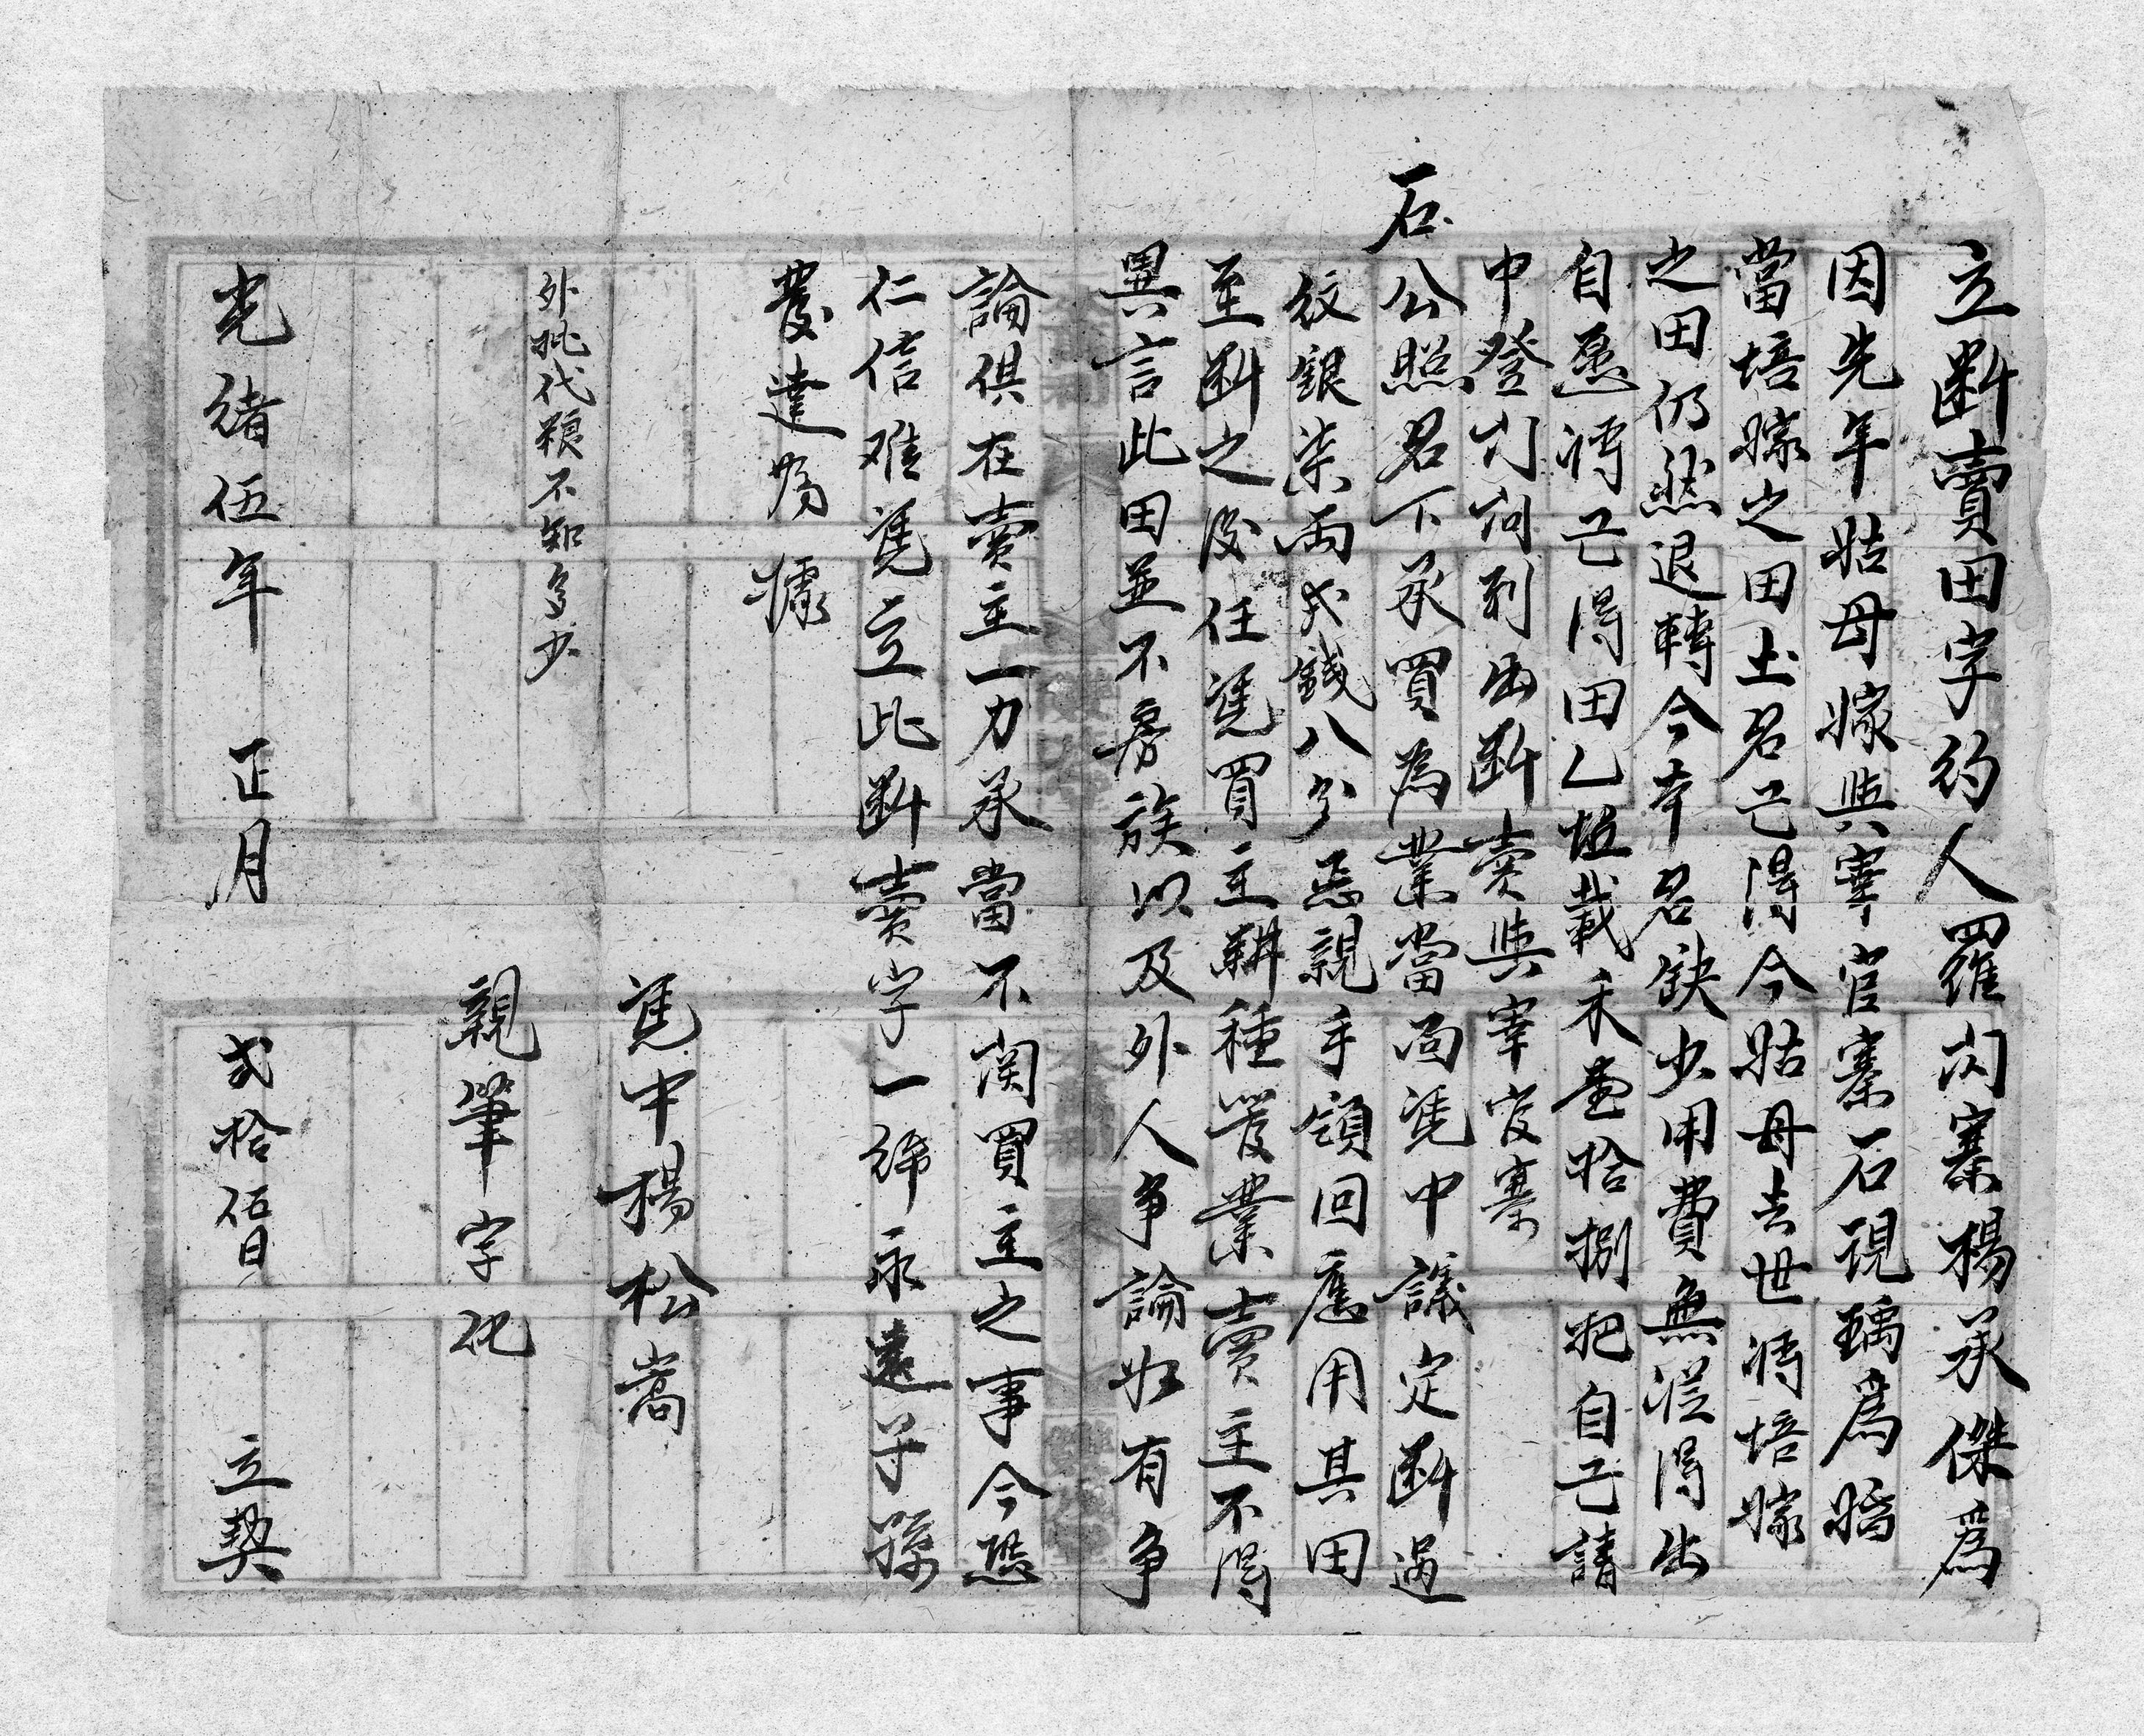 立斷賣田字約人羅闪寨楊承傑爲
因先年姑母嫁與宰官寨石現瑀爲婚
當培嫁之田土名己得今姑母去世將培嫁
之田仍然退轉今本名缺少用費無從得出
自愿將己得田乙坵載禾壹拾捌把自己請
中登門問到出斷賣與宰官寨
石
公照名下承買爲業當面凭中議定斷過
紋銀柒両弍錢八分正親手領回應用其田
至斷之後任凭買主耕種管業賣主不得
異言此田並不房族以及外人争論如有争
論俱在賣主一力承當不関買主之事今恐
仁信难凭立此断賣字一紙永遠子孫
發達爲據
凭中楊松嵩
外批代粮不知多少
親筆字記
光緒伍年 正月 弍拾伍日 立契